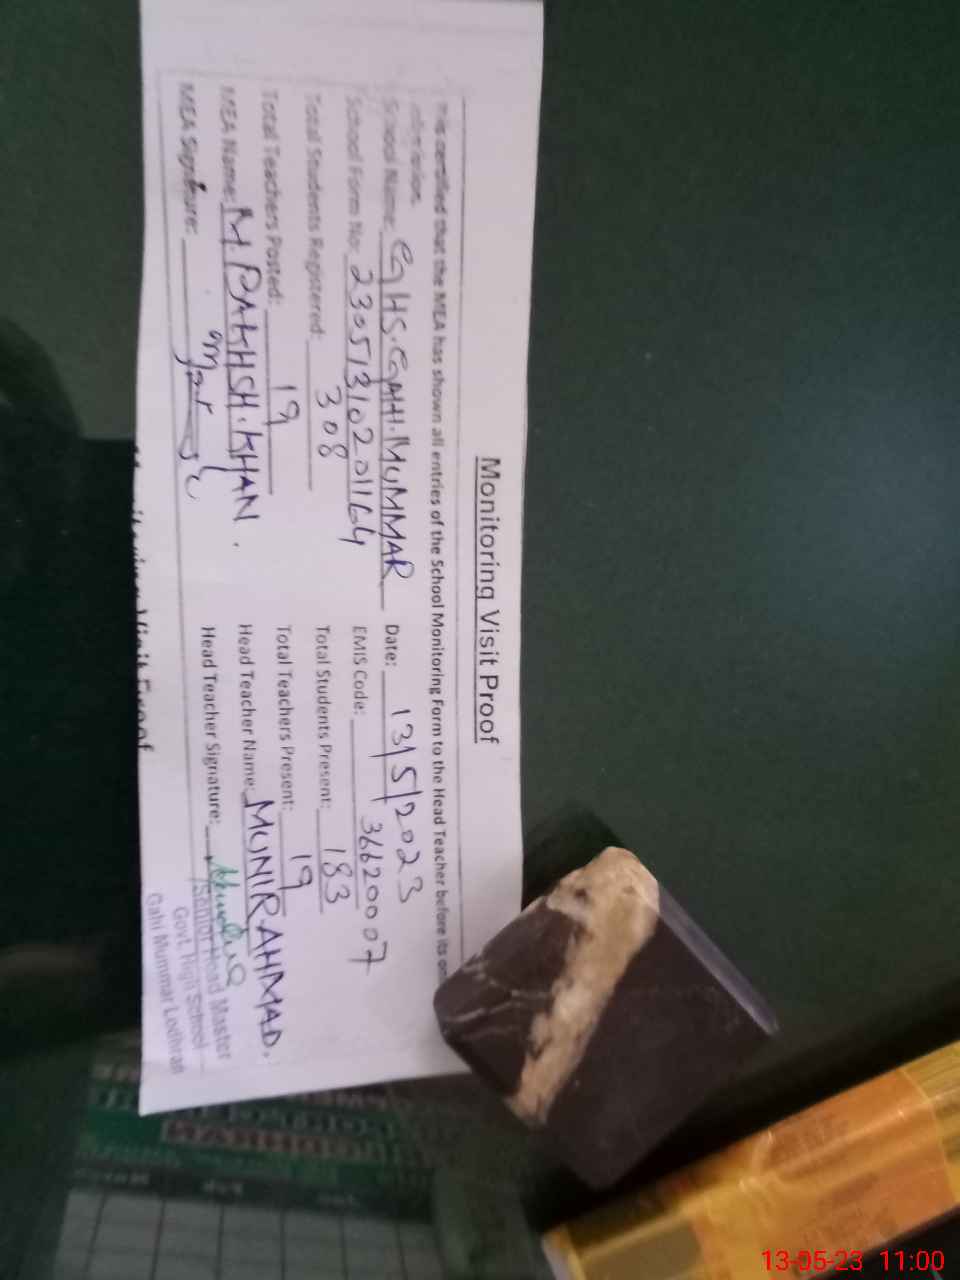 Monitoring Visit Proof
This certified that the MEA has shown all entries of the School Monitoring Form to the Head Teacher before its
School Name: GHS. GAHI. MUMMAR Date: 13/5/2023
School Form No: 23051310201164 EMIS Code: 36620007
Total Students Registered: 308 Total Students Present: 183
Total Teachers Posted: 19 Total Teachers Present: 19
MEA Name: M. BAKHSH. KHAN. Head Teacher Name: MUNIR. AHMAD.
MEA Signature: Head Teacher Signature:
Senior Head Master
Govt. High School
Gahi Mummar Lodhran
13-05-23 11:00